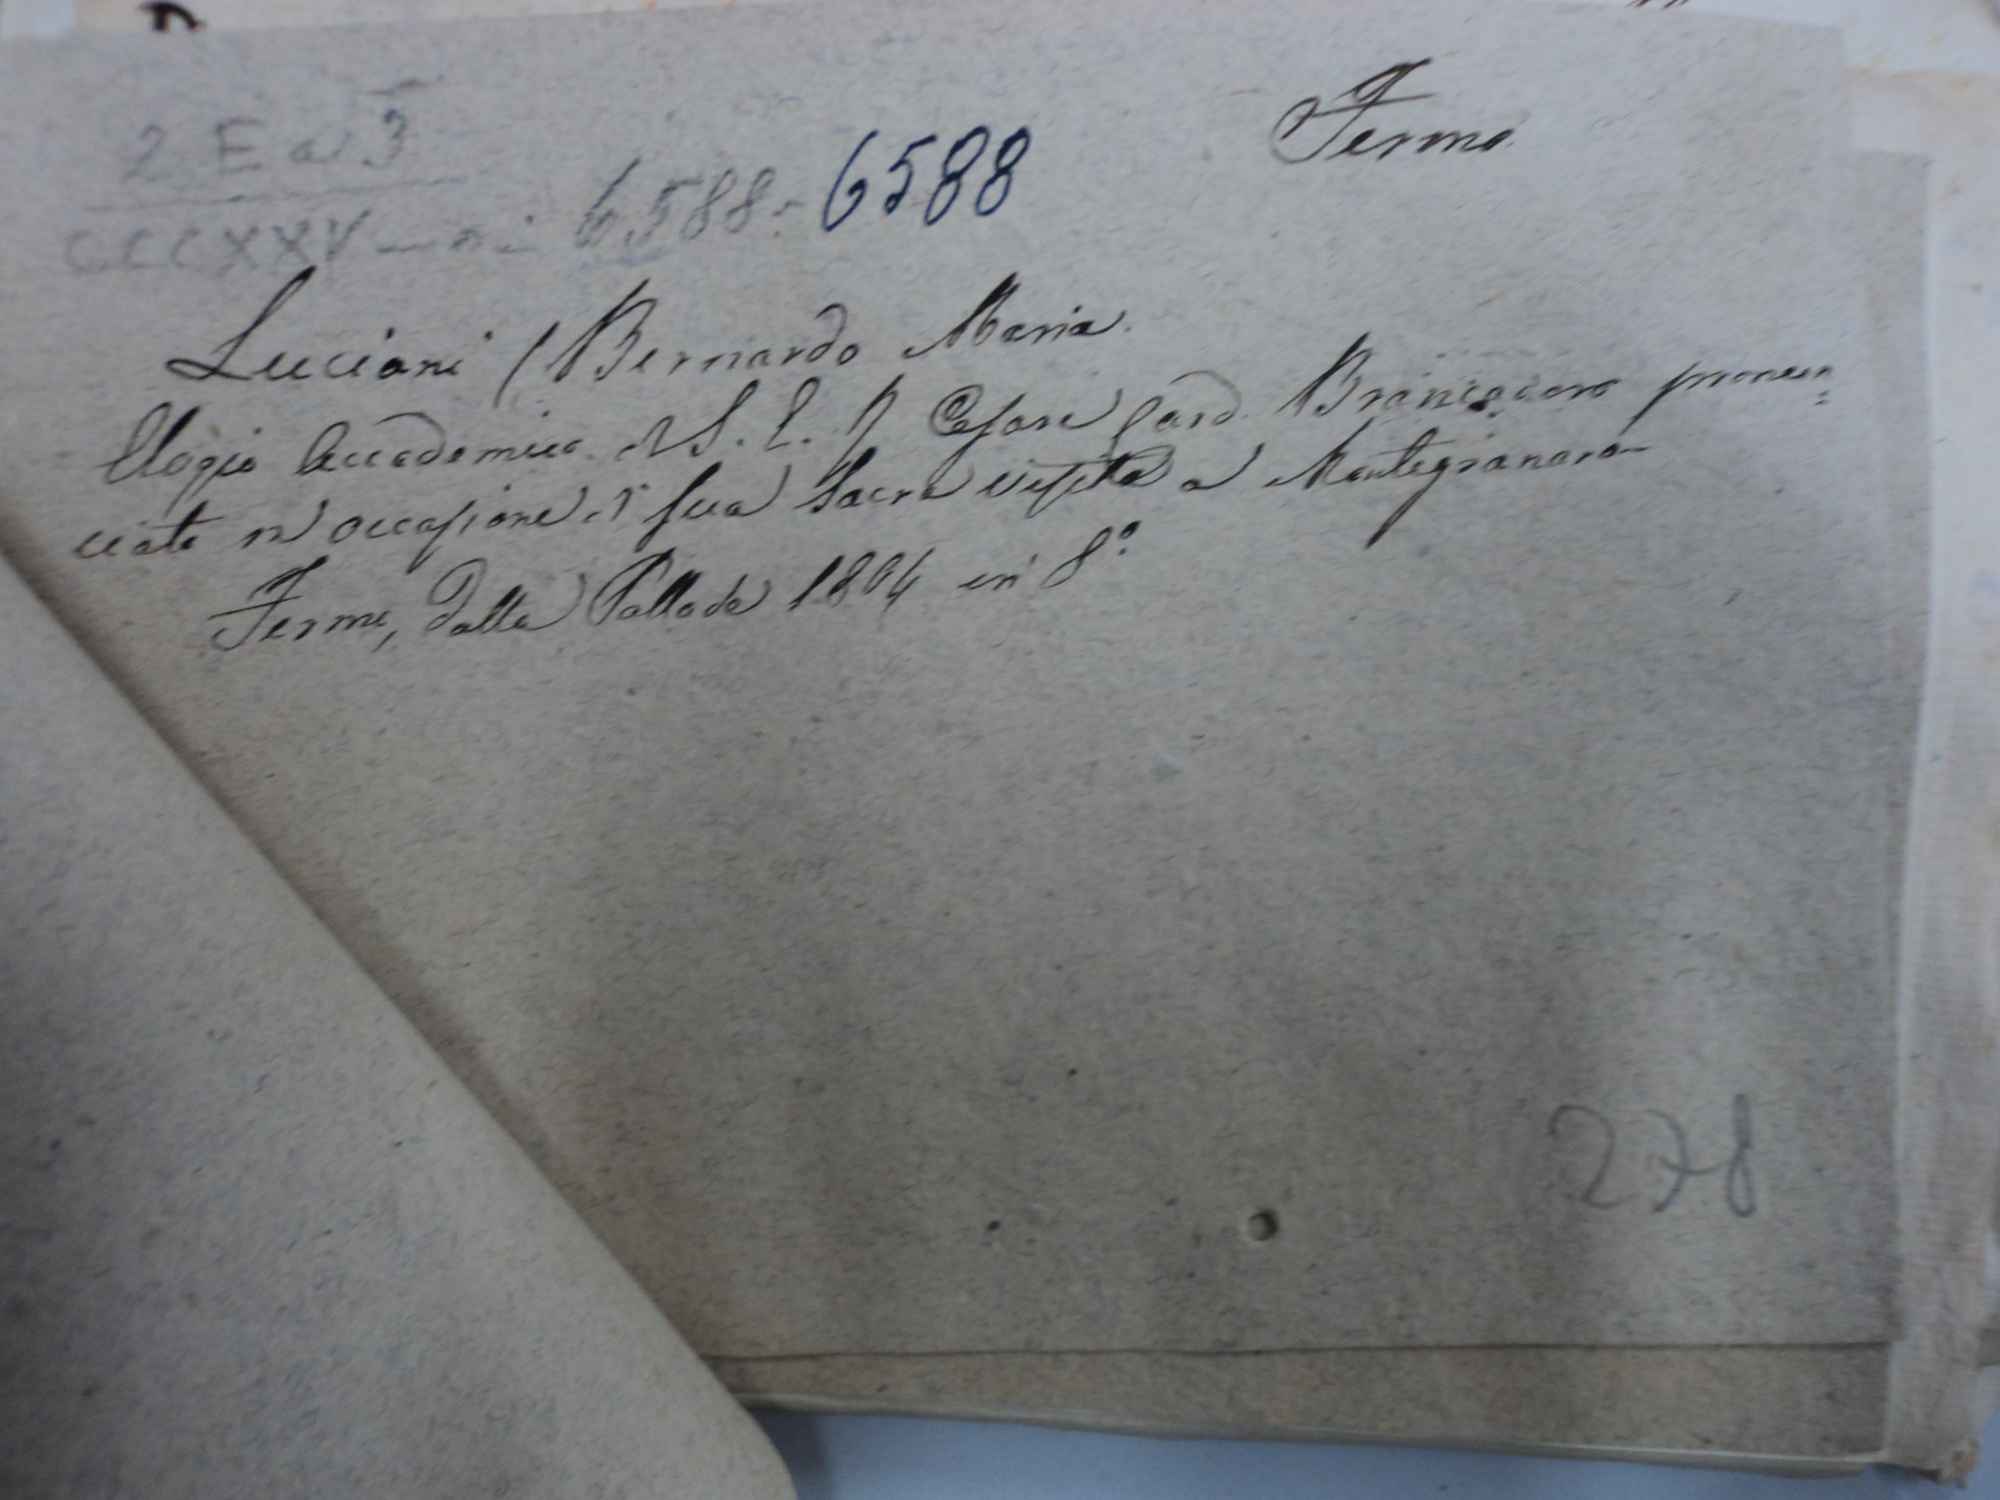 Fermo
2 E a 3
CCCXXV — n: 6588. 6588
Luciani (Bernardo Maria.
Elogio Accademico di S. E. R Cesare Card. Brancadoro pronun=
ciato in occasione di sua Sacra visita a Montegranaro
Fermo, dalla Pallade 1804 in 8.º
278